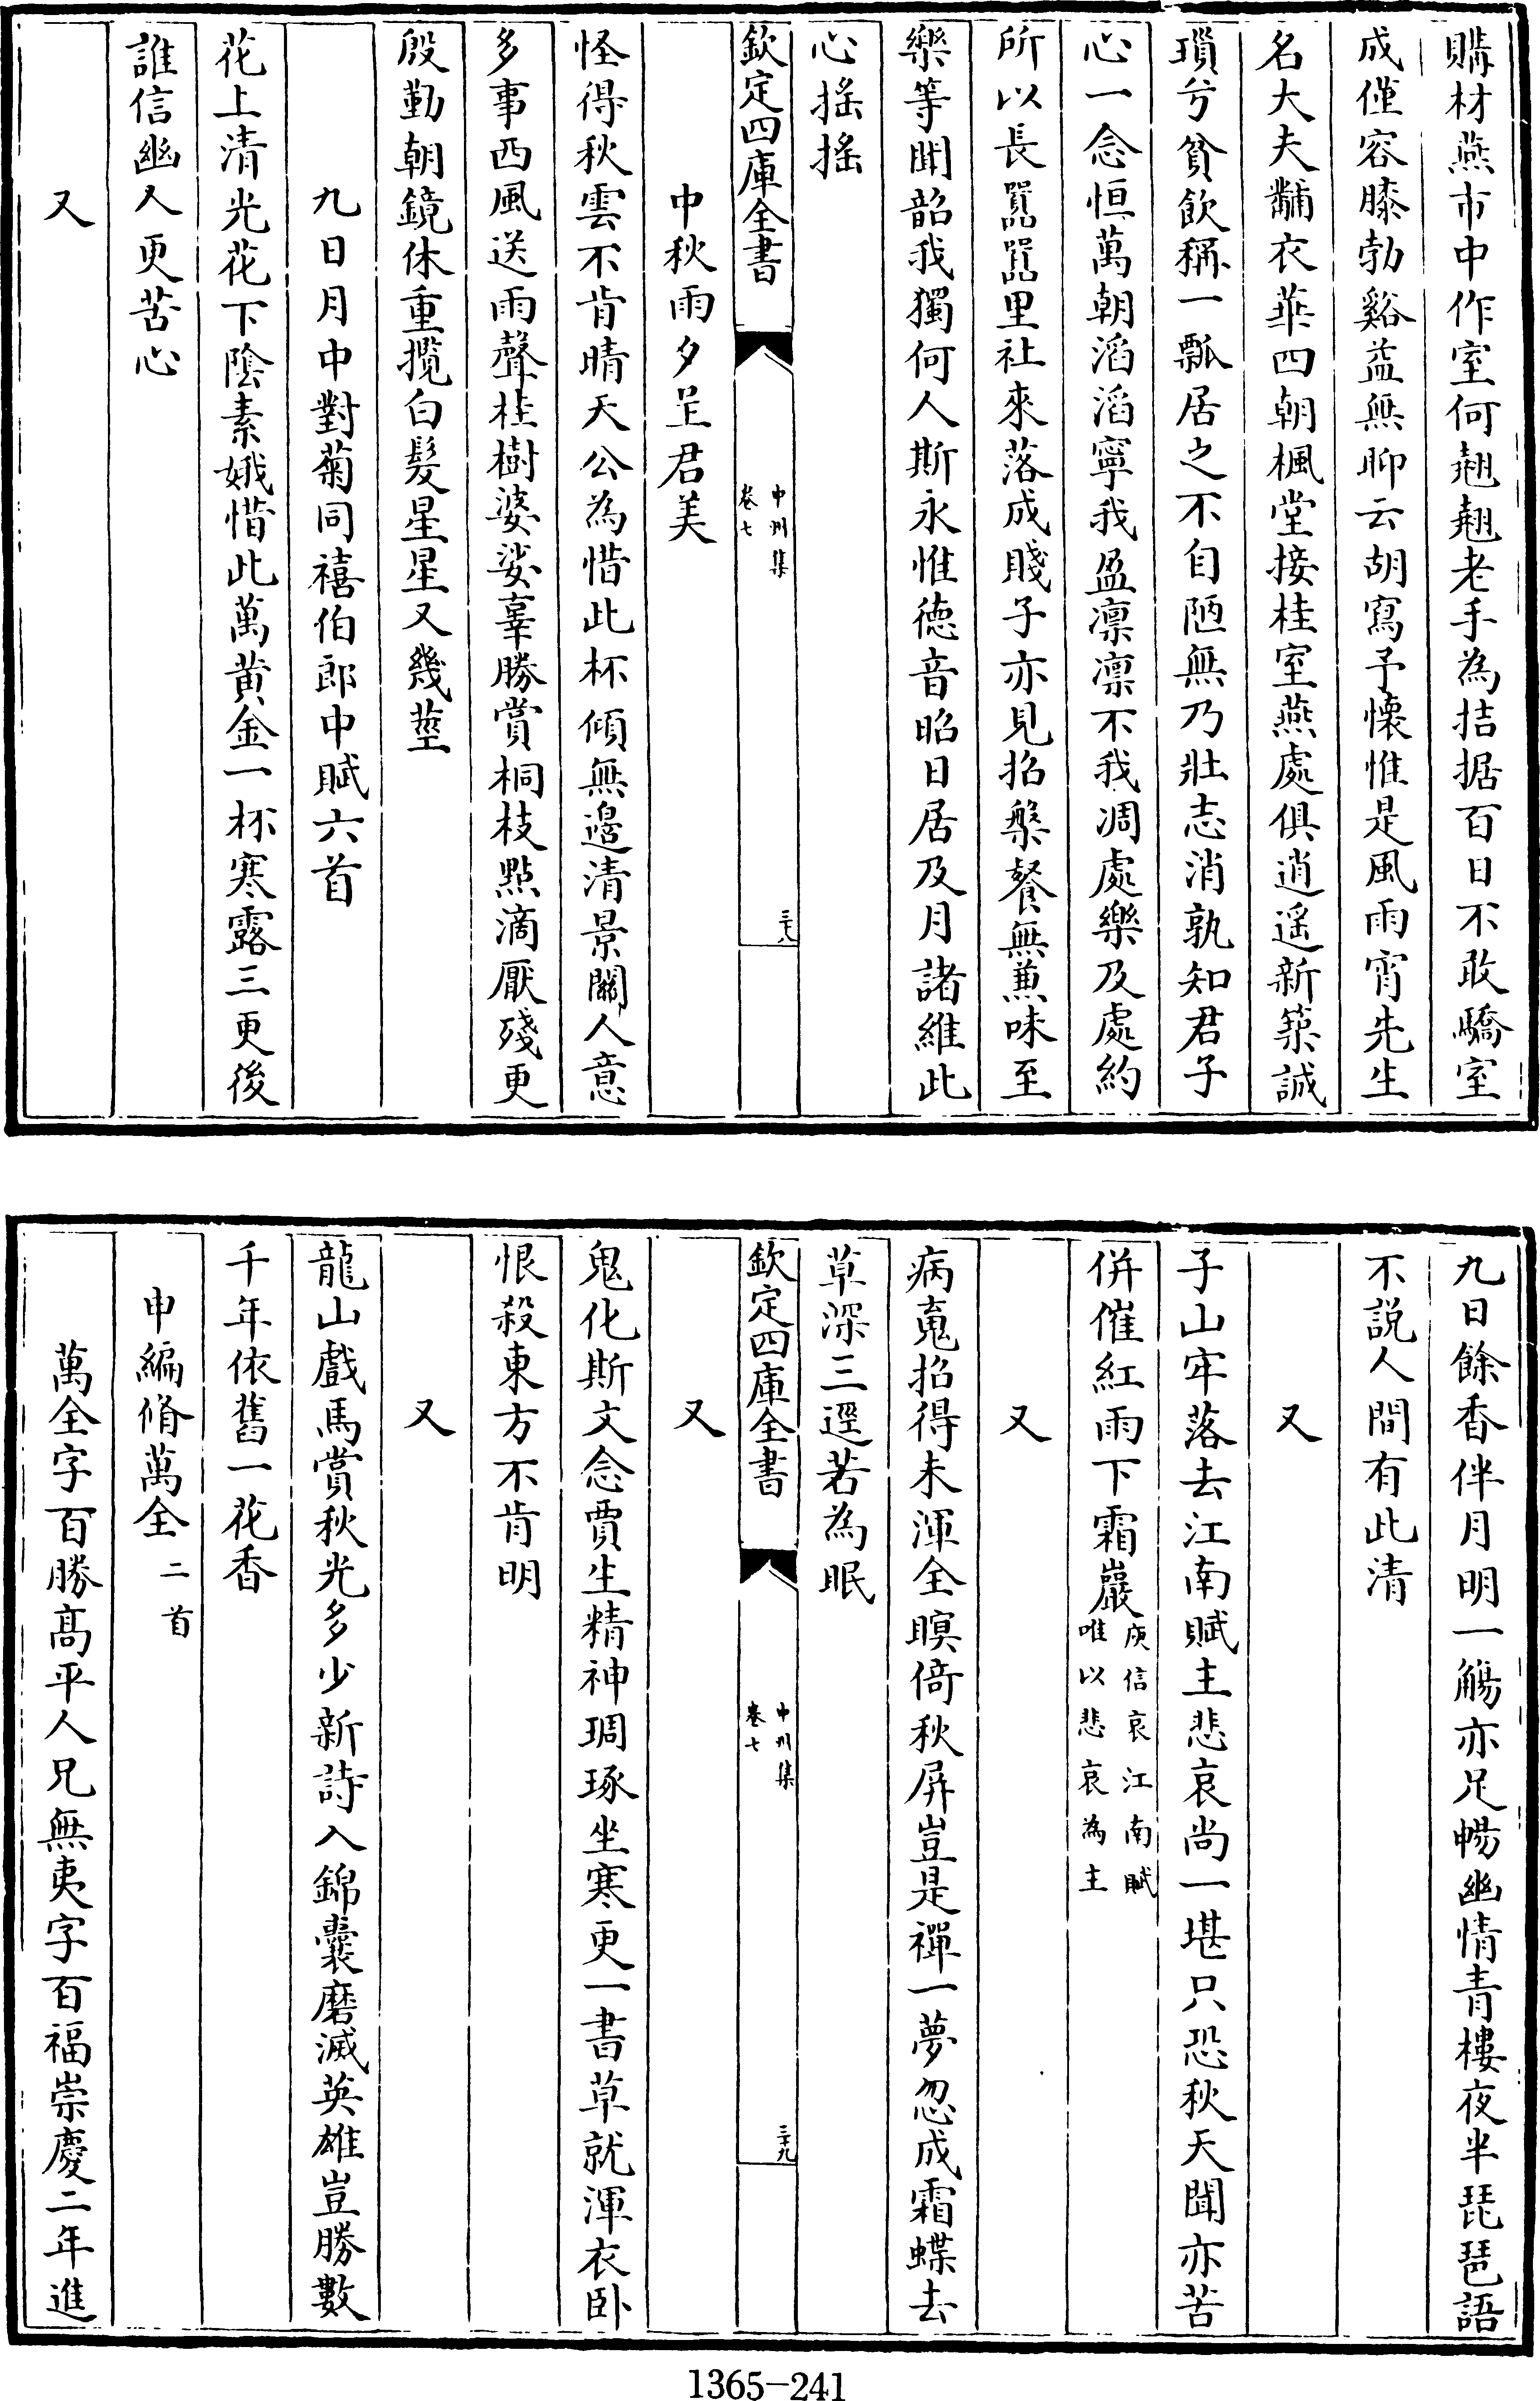 購材燕市中作室何翹翹老手為拮据百日不敢驕室
成僅容膝勃谿益無聊云胡寫予懷惟是風雨宵先生
名大夫黼衣華四朝楓堂接桂室燕處俱逍遥新築誠
瑣兮貧飲稱一瓢居之不自陋無乃壯志消孰知君子
心一念恒萬朝滔滔寧我盈凛凛不我凋處樂及處約
所以長嚣嚣里社來落成賤子亦見招槃餐無兼味至
樂等聞韶我獨何人斯永惟德音昭日居及月諸維此
心摇摇
欽定四庫全書
中州集
卷七
三十八
中秋雨夕呈君美
怪得秋雲不肯晴天公為惜此杯傾無邊清景關人意
多事西風送雨聲桂樹婆娑辜勝賞桐枝點滴厭殘更
殷勤朝鏡休重攬白髮星星又幾莖
九日月中對菊同禧伯郎中賦六首
花上清光花下陰素娥惜此萬黄金一杯寒露三更後
誰信幽人更苦心
又
九日餘香伴月明一觴亦足暢幽情青樓夜半琵琶語
不説人間有此清
又
子山牢落去江南賦主悲哀尚一堪只恐秋天聞亦苦
併催紅雨下霜巖庾信哀江南賦
唯以悲哀為主
又
病䰟招得未渾全瞑倚秋屏豈是禪一夢忽成霜蝶去
草深三逕若為眠
欽定四庫全書
中州集
卷七
三十九
又
鬼化斯文念賈生精神琱琢坐寒更一書草就渾衣卧
恨殺東方不肯明
又
龍山戲馬賞秋光多少新詩入錦囊磨滅英雄豈勝數
千年依舊一花香
申編脩萬全二首
萬全字百勝髙平人兄無夷字百福崇慶二年進
1365-241